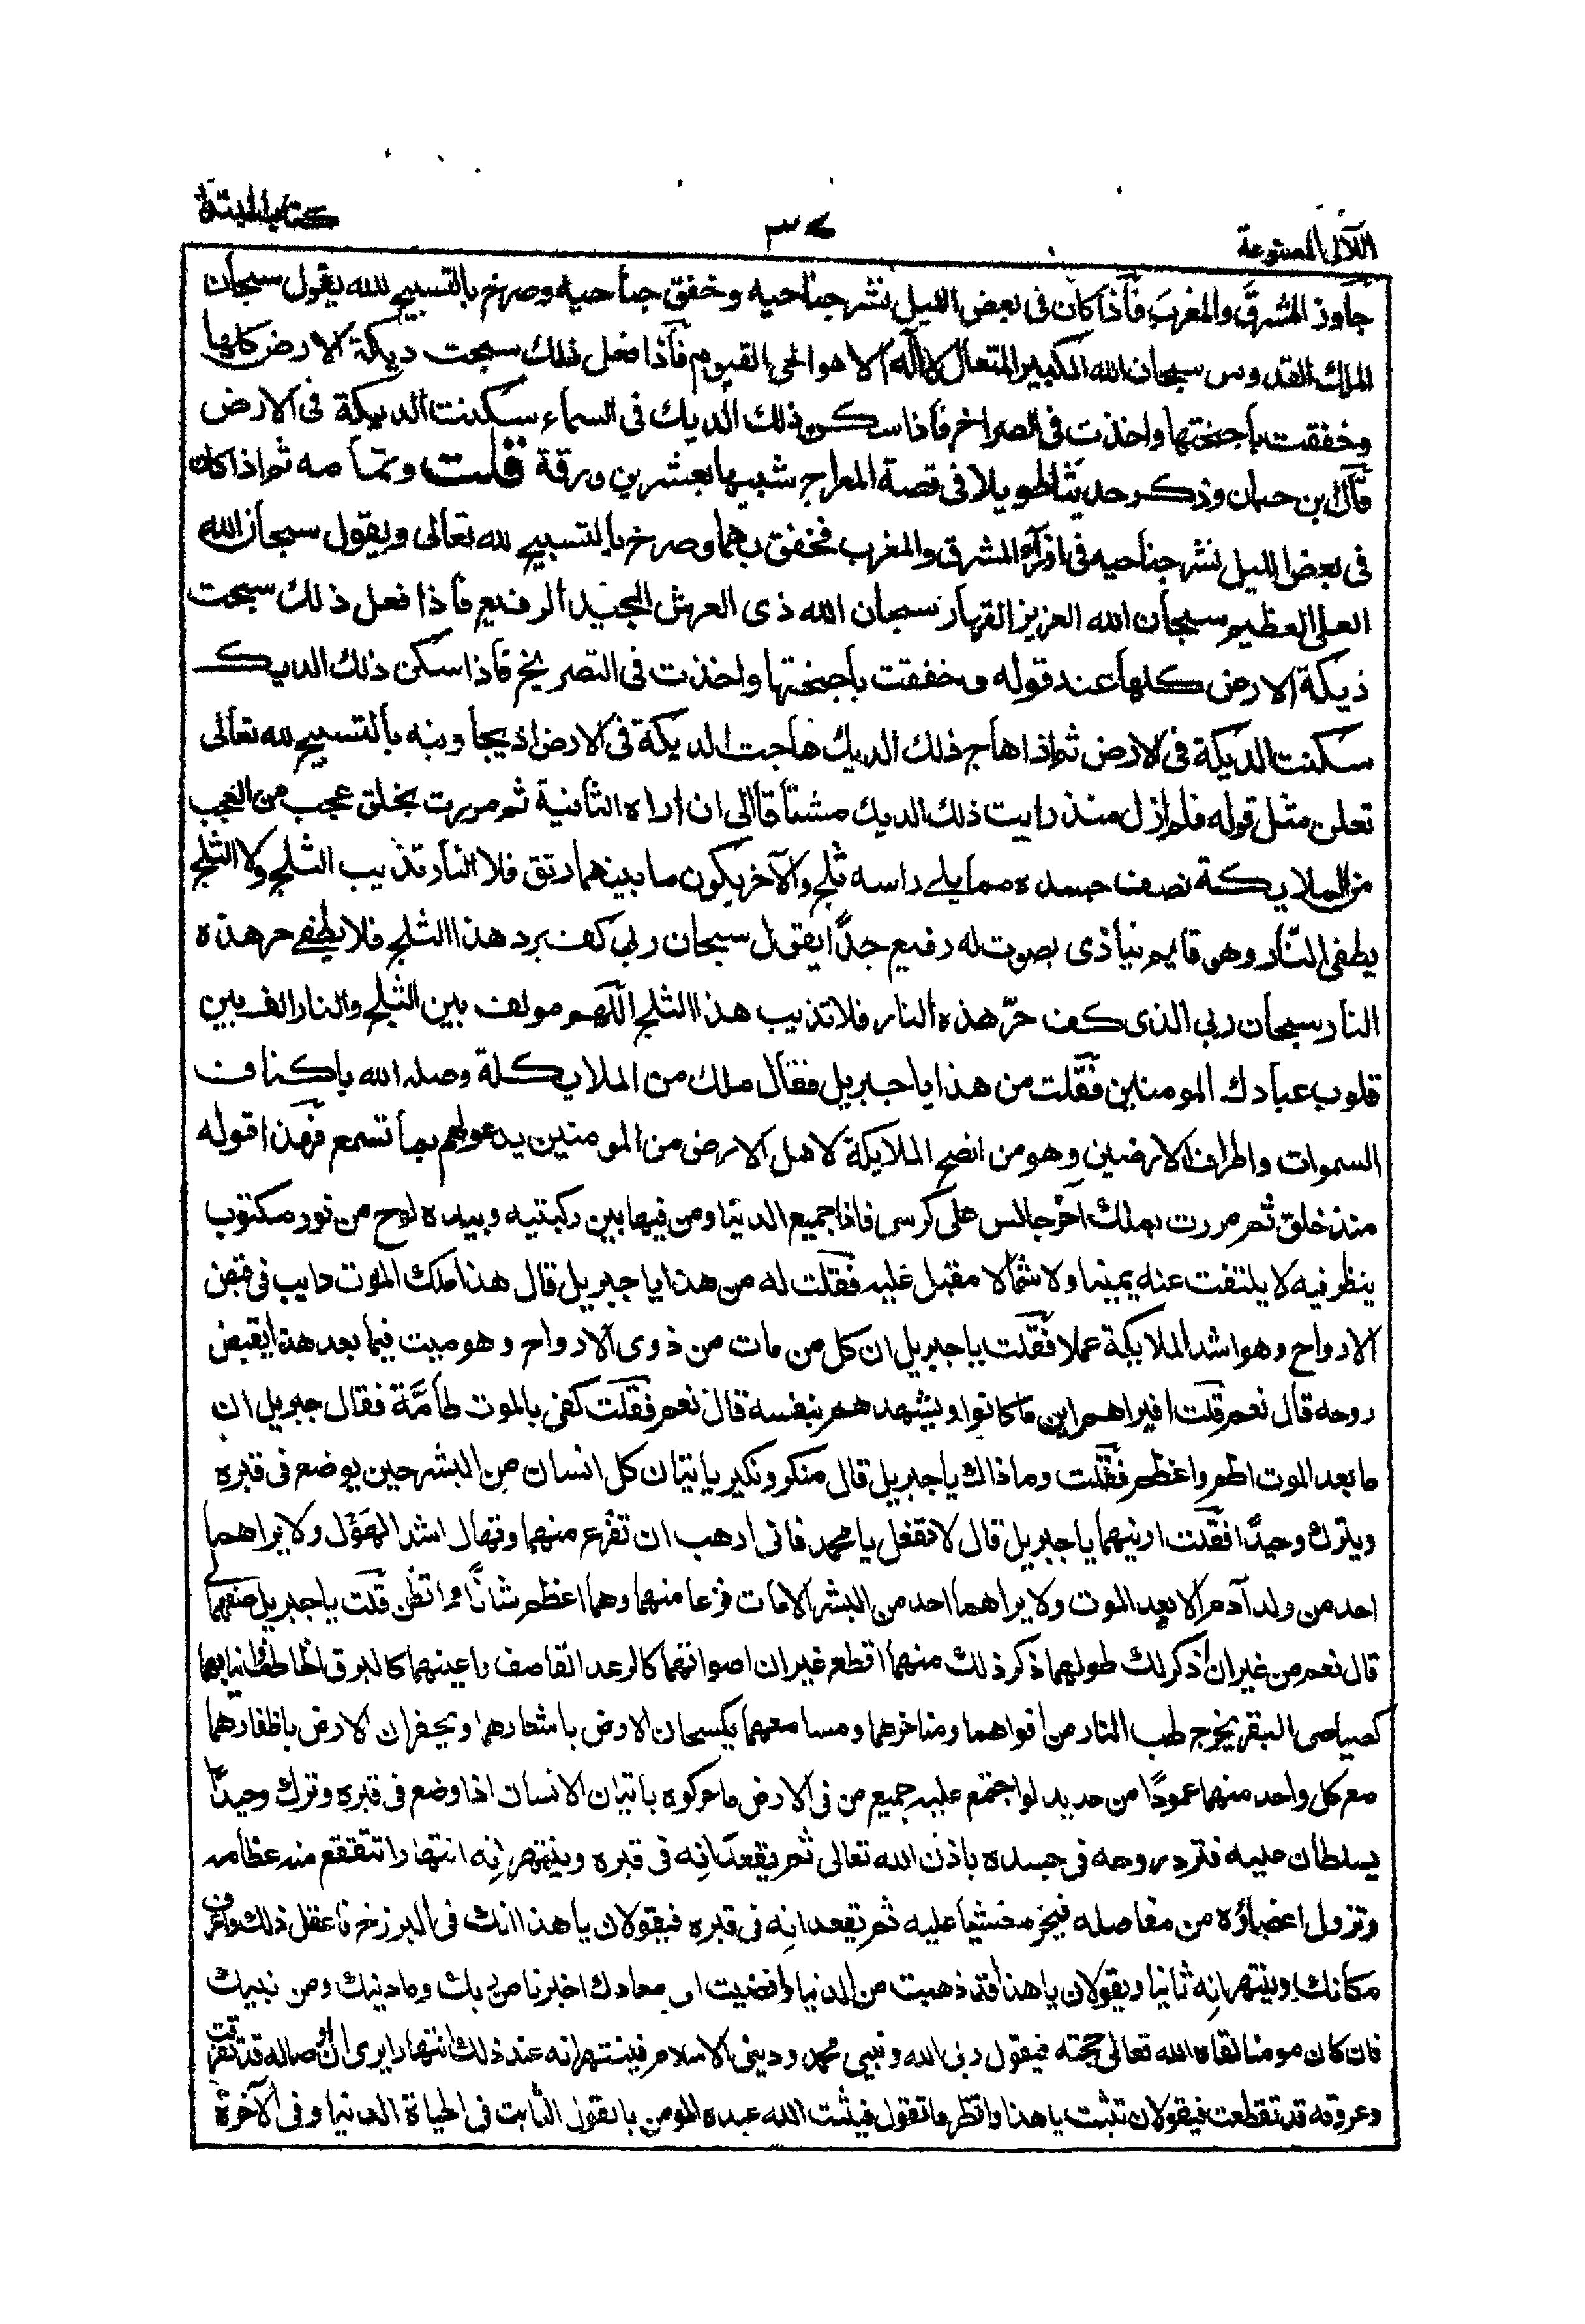 اللآلى المصنوعة ٣٧ كتاب المبتدا
جاوز المشرق والمغرب فاذا كان فى بعض الليل نشر جناحيه وخفق جناحيه وصرخ بالتسبيح لله يقول سبحان
الملك القدوس سبحان الله الكبير المتعال لا اله الا هو الحى القيوم فاذا فعل ذلك سبحت ديكة الارض كلها
وخفقت باجنحتها واخذت فى الصراخ فاذا سكن ذلك الديك فى السماء سكنت الديكة فى الارض
قال ابن حبان وذكر حديثا طويلا فى قصة المعراج شبيها بعشرين ورقة قلت وتمامه ثم اذا كان
فى بعض الليل نشر جناحيه فى افق المشرق والمغرب فخفق بهما وصرخ بالتسبيح لله تعالى ويقول سبحان الله
العلى العظيم سبحان الله العزيز القهار سبحان الله ذى العرش المجيد الرفيع فاذا فعل ذلك سبحت
ديكة الارض كلها عند قوله وخففت باجنحتها واخذت فى التصريخ فاذا سكن ذلك الديك
سكنت الديكة فى الارض ثم اذا هاج ذلك الديك هاجت الديكة فى الارض اذ يجاوبنه بالتسبيح لله تعالى
تعلن مثل قوله فلم ازل منذ رايت ذلك الديك مشتاقا الى ان اراه الثانية ثم مررت بخلق عجب من العجب
من الملايكة نصف جسده مما يلى راسه ثلج والآخر يكون ما بينهما رتق فلا النار تذيب الثلج ولا الثلج
يطفى النار وهو قايم ينادى بصوت له رفيع جدًا يقول سبحان ربى كف برد هذا الثلج فلا يطفى حر هذه
النار سبحان ربى الذى كف حرّ هذه النار فلا تذيب هذا الثلج اللهم مولف بين الثلج والنار الف بين
قلوب عبادك المومنين فقلت من هذا يا جبريل فقال ملك من الملايكة وصله الله باكناف
السموات واطراف الارضين وهو من انصح الملايكة لاهل الارض من المومنين يدعو لهم بما تسمع فهذا قوله
منذ خلق ثم مررت بملك آخر جالس على كرسى فاذا جميع الدنيا ومن فيها بين ركبتيه وبيده لوح من نور مكتوب
ينظر فيه لا يلتفت عنه يمينا ولا شمالا مقبل عليه فقلت له من هذا يا جبريل قال هذا ملك الموت دايب فى قبض
الارواح وهو اشد الملايكة عملا فقلت يا جبريل ان كل من مات من ذوى الارواح وهو ميت فيما بعد هذا يقبض
روحه قال نعم قلت افيراهم اين ما كانوا ويشهدهم بنفسه قال نعم فقلت كفى بالموت طامّة فقال جبريل ان
ما بعد الموت اطم واعظم فقلت وما ذاك يا جبريل قال منكر ونكير ياتيان كل انسان من البشر حين يوضع فى قبره
ويترك وحيدًا فقلت ارينيهما يا جبريل قال لا تفعل يا محمد فانى ارهب ان تفزع منهما وتهال اشد الهول ولا يراهما
احد من ولد آدم الا بعد الموت ولا يراهما احد من البشر الا مات فزعا منهما وهما اعظم شانًا مما تظن قلت يا جبريل صفهما لى
قال نعم من غير ان اذكر لك طولهما ذكر ذلك منهما اقطع غير ان اصواتهما كالرعد القاصف واعينهما كالبرق الخاطف وانيابهما
كصياصى البقر يخرج لهب النار من افواهما ومناخرهما ومسامعهما يكسحان الارض باشعارهما ويحفران الارض باظفارهما
مع كل واحد منهما عمودًا من حديد لو اجتمع عليه جميع من فى الارض ما حركوه ياتيان الانسان اذا وضع فى قبره وترك وحيدًا
يسلطان عليه فترد روحه فى جسده باذن الله تعالى ثم يقعدانه فى قبره وينتهرانه انتهارا تتقعقع منه عظامه
وتزول اعضاؤه من مفاصله فيخر مغشيا عليه ثم يقعدانه فى قبره فيقولان يا هذا انك فى البرزخ فاعقل ذلك واعرف
مكانك وينتهرانه ثانيا ويقولان يا هذا قد ذهبت من الدنيا وافضيت الى معادك اخبرنا من ربك وما دينك ومن نبيك
فان كان مومنا لقاه الله تعالى حجته فيقول ربى الله ونبيى محمد ودينى الاسلام فينتهرانه عند ذلك انتهارا يرى ان اوصاله قد تفرقت
وعروقه قد تقطعت فيقولان تثبت يا هذا وانظر ما تقول فيثبت الله عبده المومن بالقول الثابت فى الحياة الدنيا وفى الآخرة